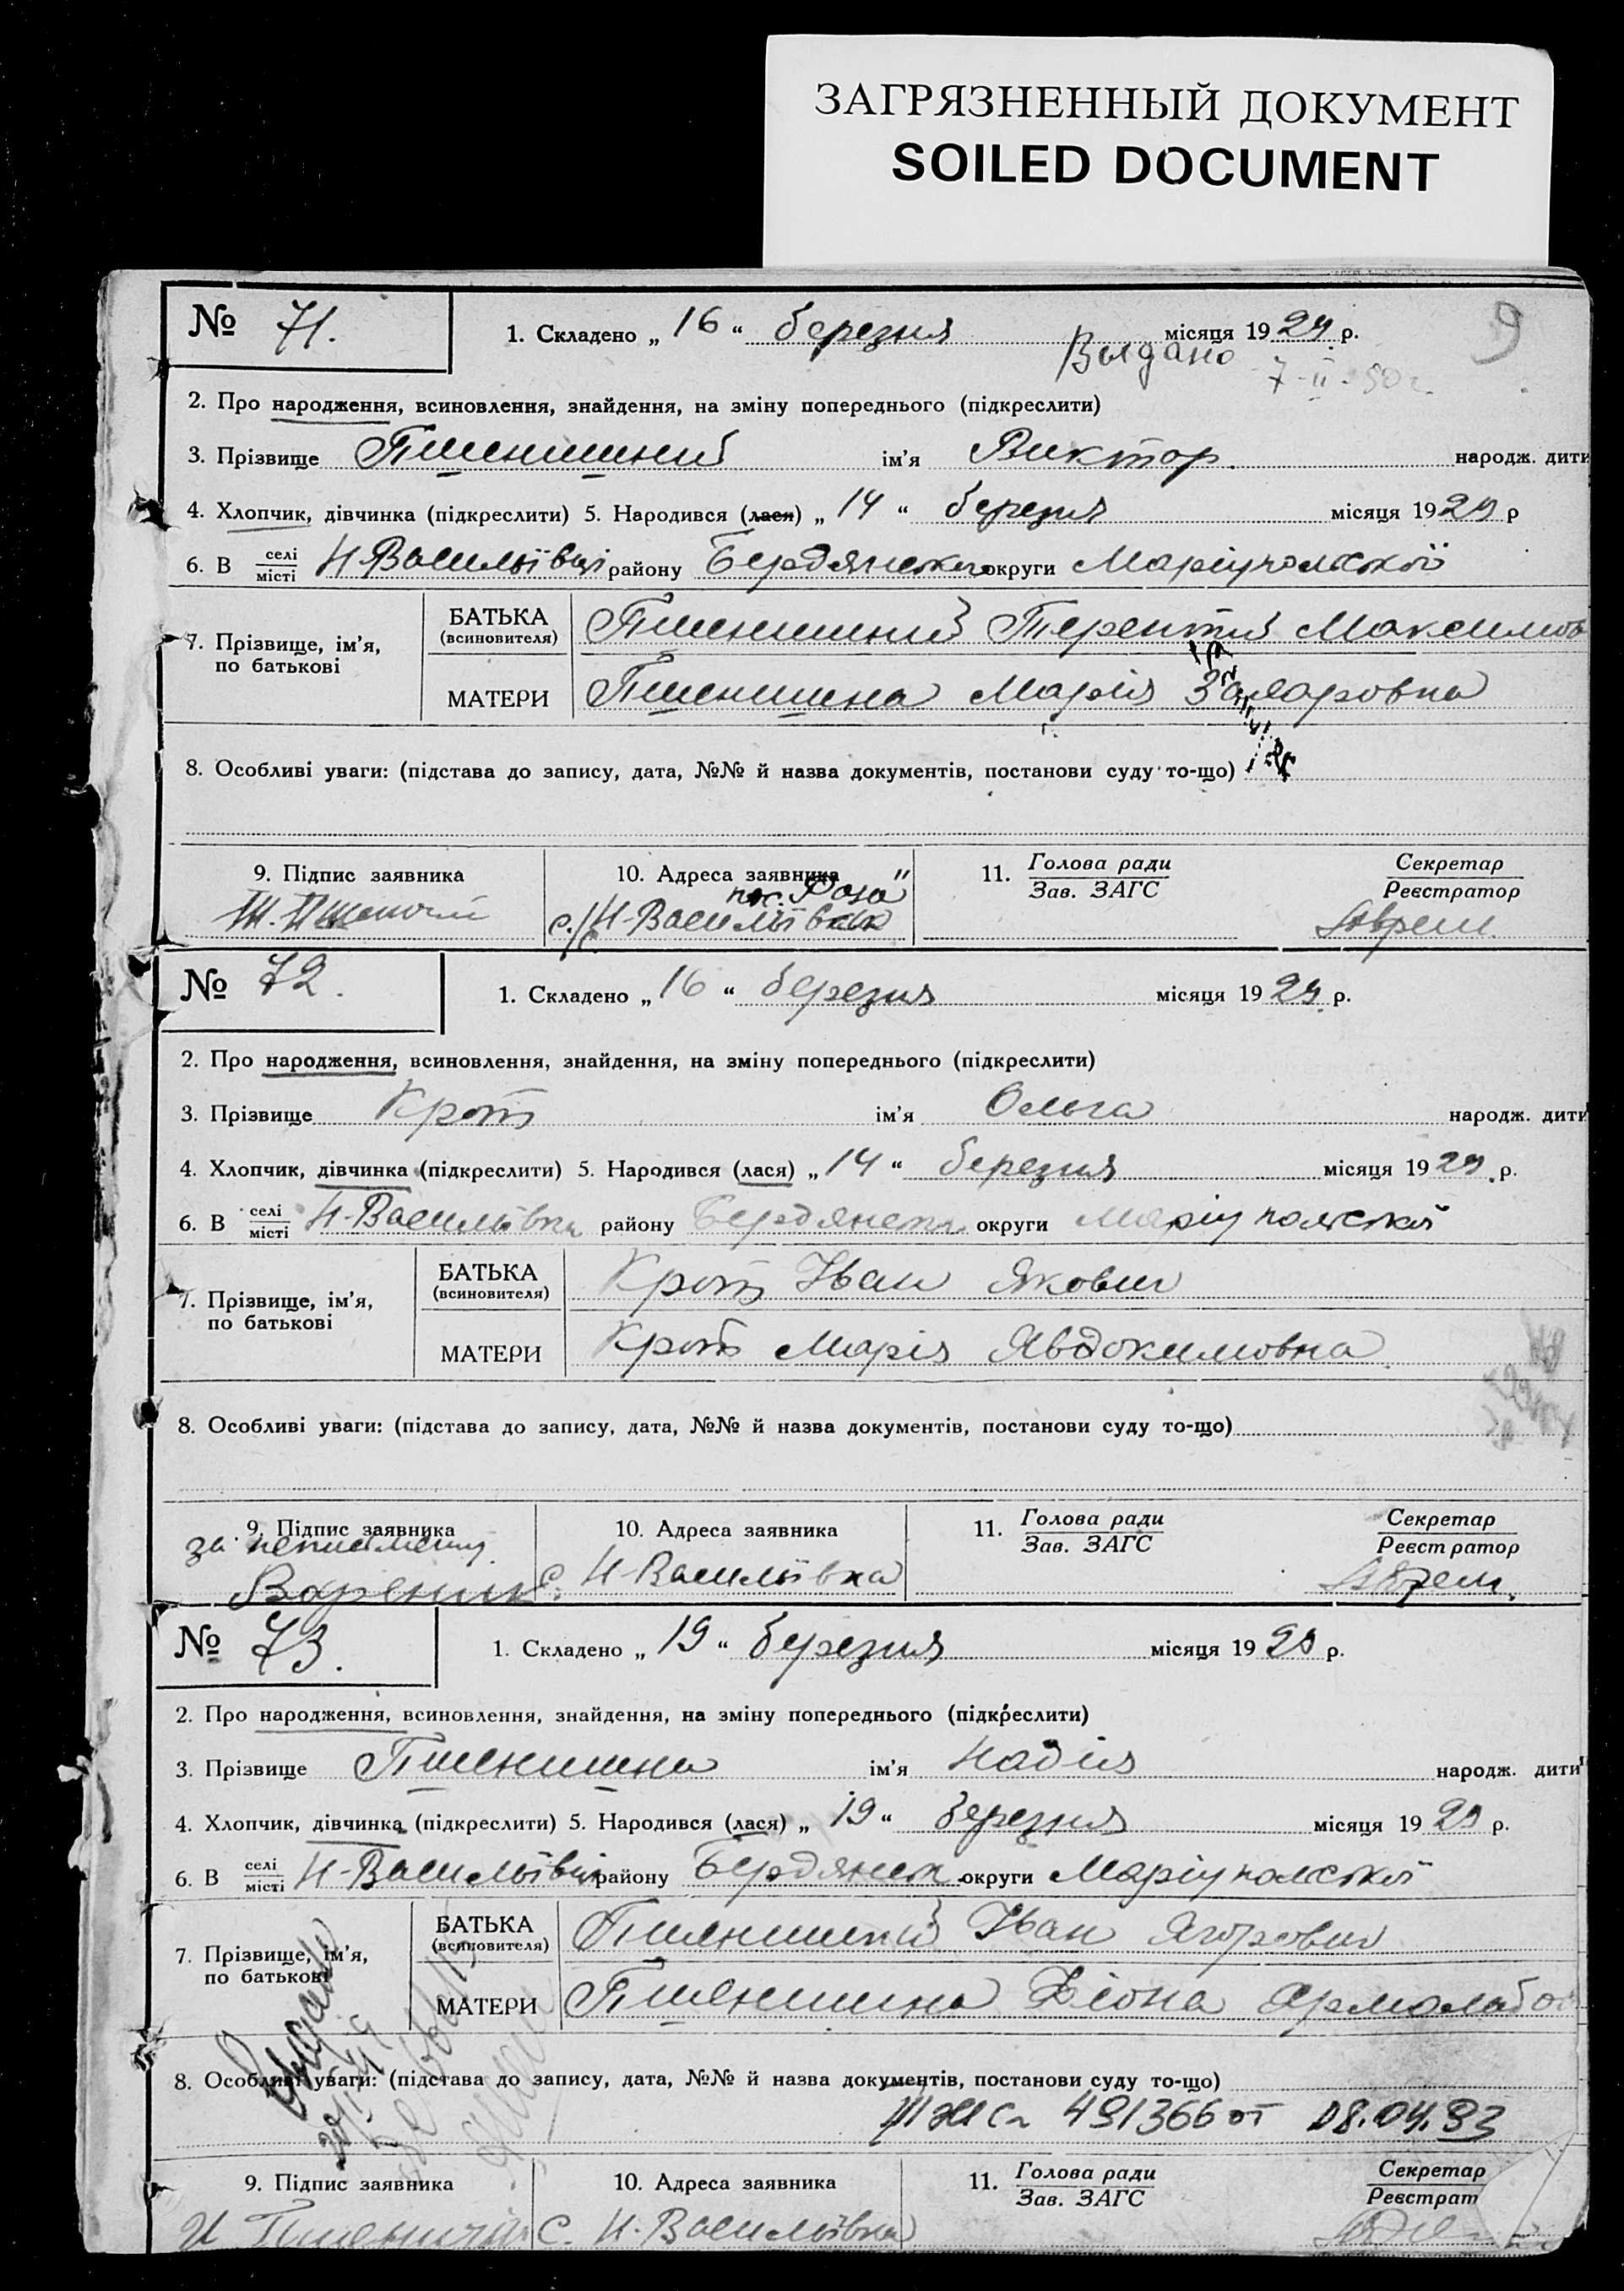 ЗАГРЯЗНЕННЫЙ ДОКУМЕНТ
SOILED DOCUMENT
9
№ 71. 1. Складено „ 16 “ березня місяця 1929 р.
Выдано 7-II-50 г.
2. Про народження, всиновлення, знайдення, на зміну попереднього (підкреслити)
3. Прізвище Пшенишний ім’я Виктор. народж. дити
4. Хлопчик, дівчинка (підкреслити) 5. Народився (лася) „ 14 “ березня місяця 1929 р
6. В селі місті Н-Васильївці району Бердянського округи Маріупольскої
7. Прізвище, ім’я, по батькові
БАТЬКА (всиновителя) Пшенишний Терентий Максимов
МАТЕРИ Пшенишна Марія
8. Особливі уваги: (підстава до запису, дата, №№ й назва документів, постанови суду то-що)
9. Підпис заявника 10. Адреса заявника 11. Голова ради Зав. ЗАГС Секретар Реєстратор
пос. „Роза"
с. Н-Васильївка
№ 72. 1. Складено „ 16 “ березня місяця 1929 р.
2. Про народження, всиновлення, знайдення, на зміну попереднього (підкреслити)
3. Прізвище Крот ім’я Ольга народж. дити
4. Хлопчик, дівчинка (підкреслити) 5. Народився (лася) „ 14 “ березня місяця 1929 р.
6. В селі місті Н-Васильївка району Бердянськ округи Маріупольскої
7. Прізвище, ім’я, по батькові
БАТЬКА (всиновителя) Крот Іван Якович
МАТЕРИ Крот Марія Явдокимовна
8. Особливі уваги: (підстава до запису, дата, №№ й назва документів, постанови суду то-що)
9. Підпис заявника 10. Адреса заявника 11. Голова ради Зав. ЗАГС Секретар Реєстратор
за неписьмену
Вареник с. Н-Васильївка
№ 73. 1. Складено „ 19 “ березня місяця 1929 р.
2. Про народження, всиновлення, знайдення, на зміну попереднього (підкреслити)
3. Прізвище Пшенишна ім’я Надія народж. дити
4. Хлопчик, дівчинка (підкреслити) 5. Народився (лася) „ 19 “ березня місяця 1929 р.
6. В селі місті Н-Васильївці району Бердянськ округи Маріупольскої
7. Прізвище, ім’я, по батькові
БАТЬКА (всиновителя) Пшенишний Іван Ягорович
МАТЕРИ Пшенишна
8. Особливі уваги: (підстава до запису, дата, №№ й назва документів, постанови суду то-що)
491366 от 08.04.93
9. Підпис заявника 10. Адреса заявника 11. Голова ради Зав. ЗАГС Секретар Реєстрат
с. Н-Васильївка